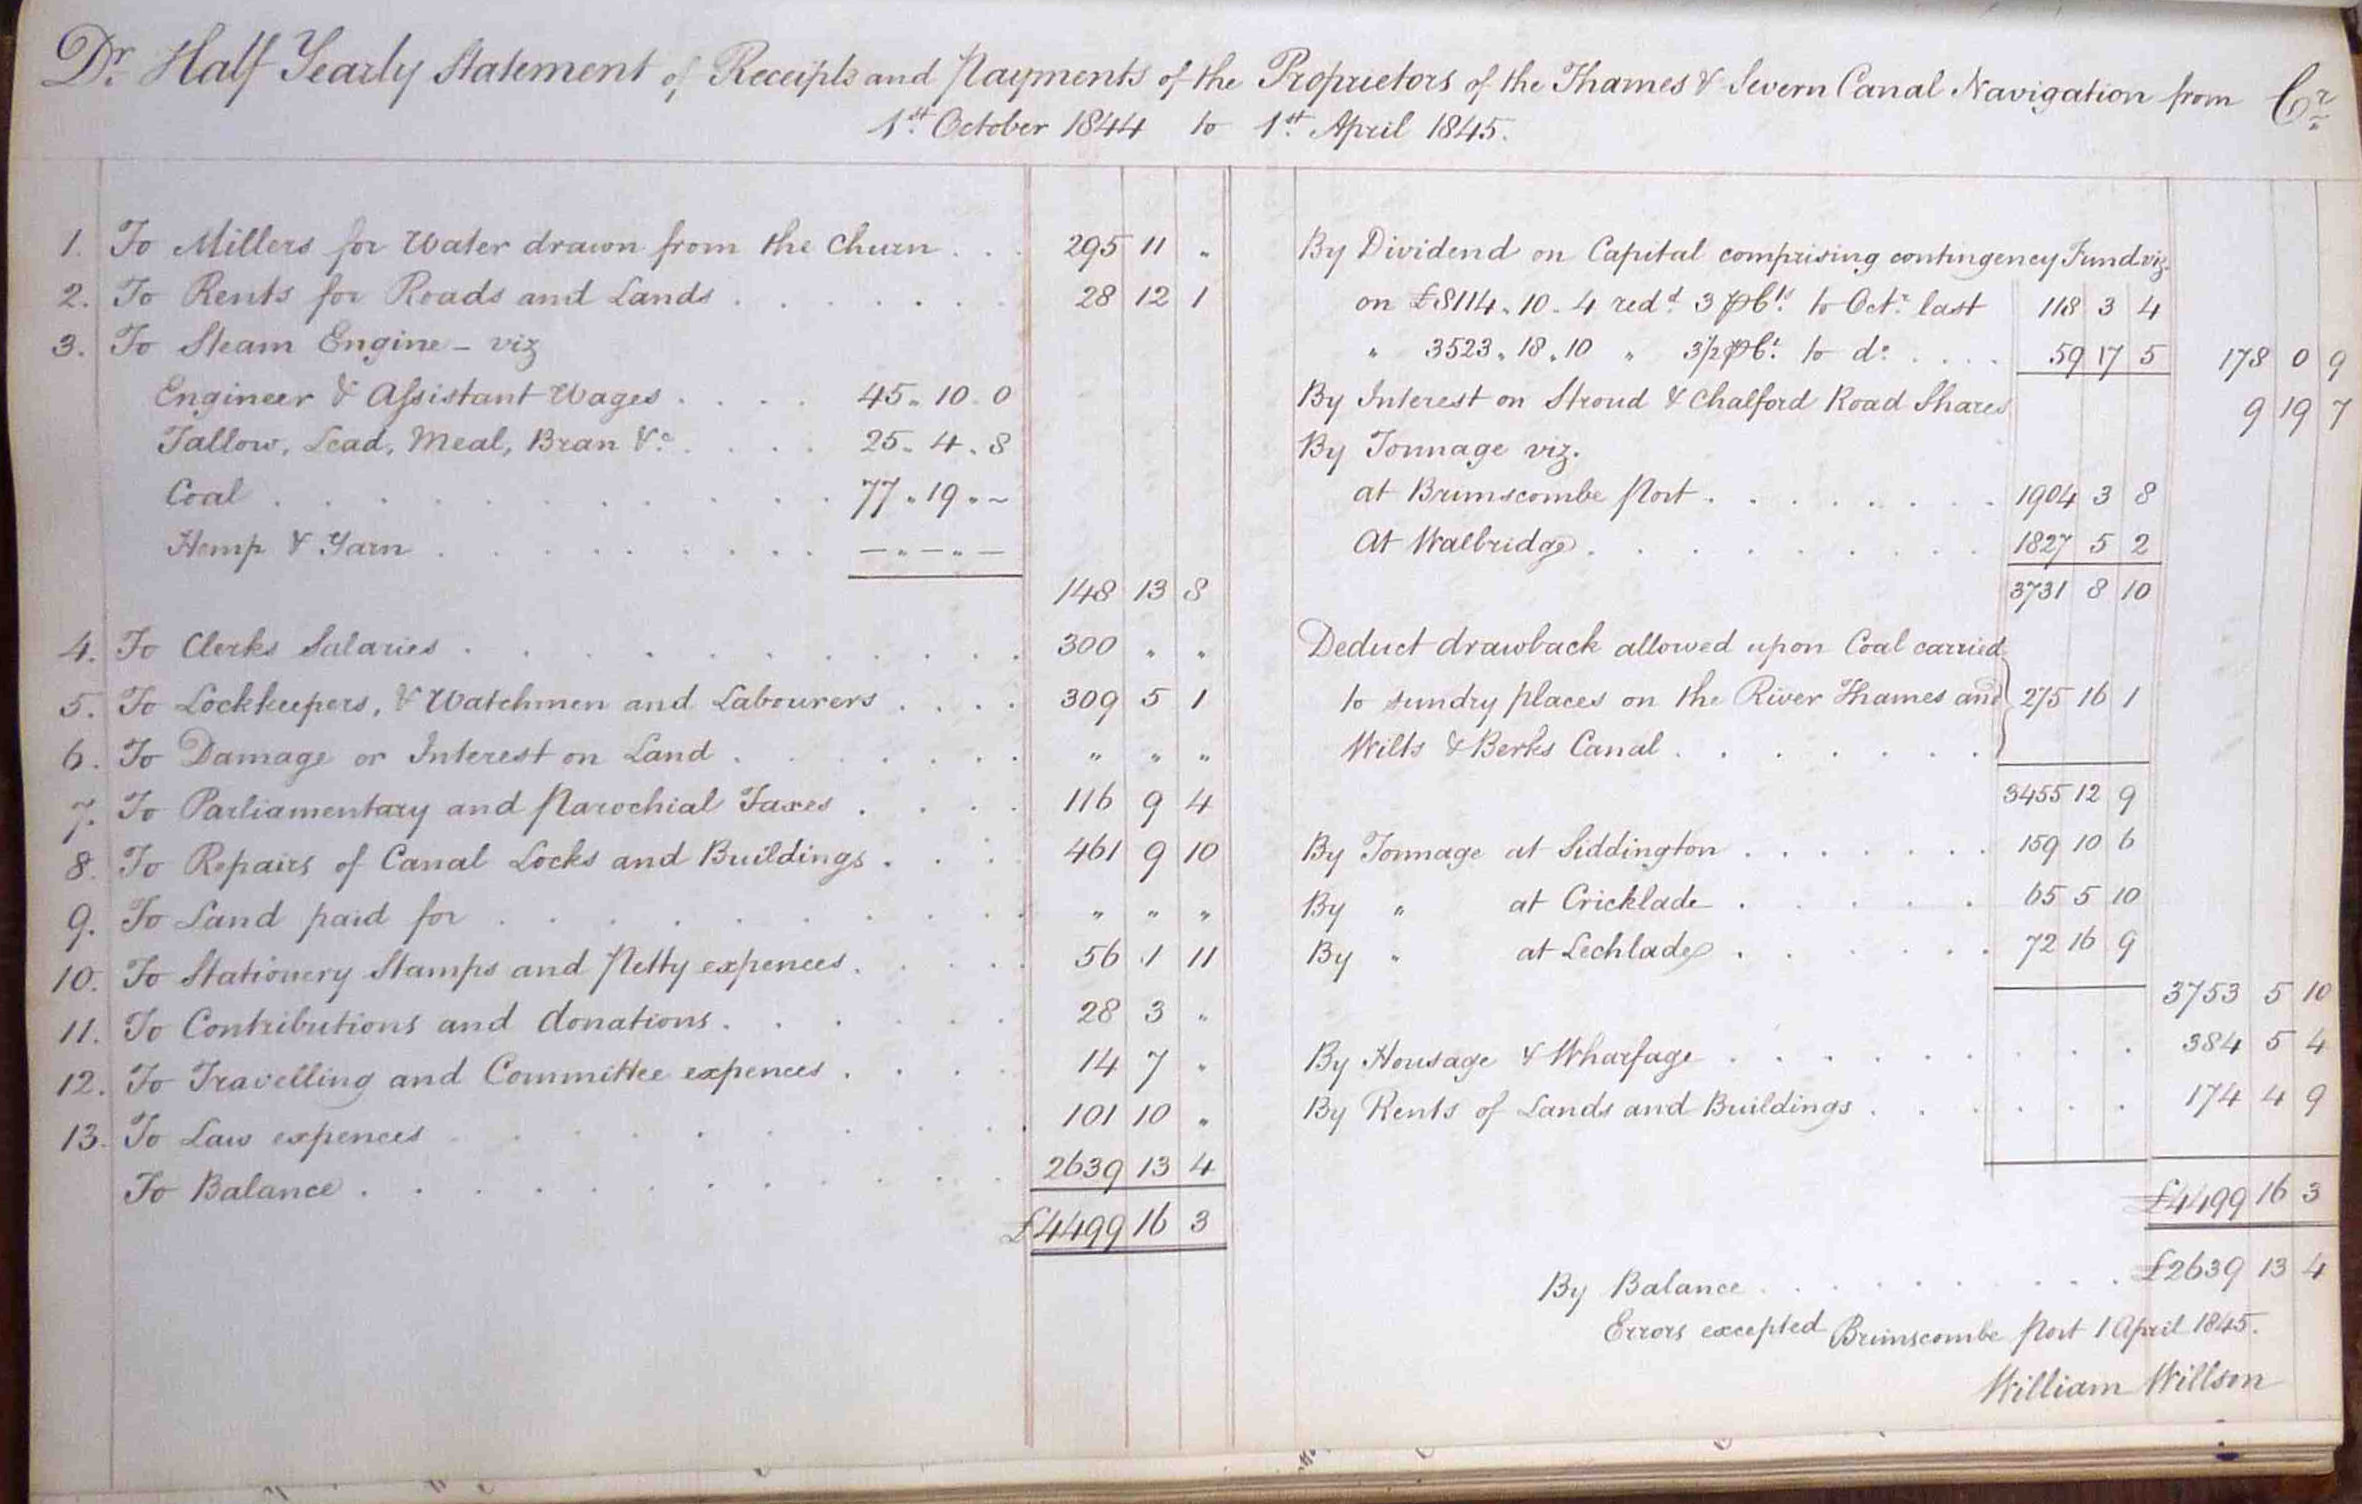 Dr. Half Yearly Statement of Receipts and Payments of the Proprietors of the Thames & Severn Canal Navigation from Cr.
1st October 1844 to 1st April 1845.
1. To Millers for Water drawn from the Churn . . . 295 11 "
2. To Rents for Roads and Lands . . . . . . . 28 12 1
3. To Steam Engine - viz
Engineer & Assistant Wages . . . . 45 " 10 . 0
Tallow, Lead, Meal, Bran &c. . . . . 25 . 4 . 8
Coal . . . . . . . . . . 77 . 19 . -
Hemp & Yarn . . . . . . . . - " - " -
148 13 8
4. To Clerks Salaries . . . . . . . . . . 300 " "
5. To Lockkeepers, & Watchmen and Labourers . . . . 309 5 1
6. To Damage or Interest on Land . . . . . . " " "
7. To Parliamentary and Parochial Taxes . . . . 116 9 4
8. To Repairs of Canal Locks and Buildings . . . . 461 9 10
9. To Land paid for . . . . . . . . . . " " "
10. To Stationery Stamps and Petty expences . . . . . 56 1 11
11. To Contributions and donations . . . . . . 28 3 "
12. To Travelling and Committee expences . . . . 14 7 "
13. To Law expences . . . . . . . . . . 101 10 "
To Balance . . . . . . . . . . . . 2639 13 4
£4499 16 3
By Dividend on Capital comprising contingency Fund viz.
on £8114 . 10 . 4 redd. 3 p Cts to Octr. last 118 3 4
" 3523 . 18 . 10 " 3½ p Ct. to do. . . . . 59 17 5 178 0 9
By Interest on Stroud & Chalford Road Shares 9 19 7
By Tonnage viz.
at Brimscombe Port . . . . . . . . 1904 3 8
At Walbridge . . . . . . . . . 1827 5 2
3731 8 10
Deduct drawback allowed upon Coal carried
to sundry places on the River Thames and 275 16 1
Wilts & Berks Canal . . . . . . .
3455 12 9
By Tonnage at Siddington . . . . . . . 159 10 6
By " at Cricklade . . . . . 65 5 10
By " at Lechlade . . . . . . 72 16 9
3753 5 10
By Housage & Wharfage . . . . . . . . . 384 5 4
By Rents of Lands and Buildings . . . . . . 174 4 9
£4499 16 3
By Balance . . . . . . . . . . £2639 13 4
Errors excepted Brimscombe Port 1 April 1845.
William Willson